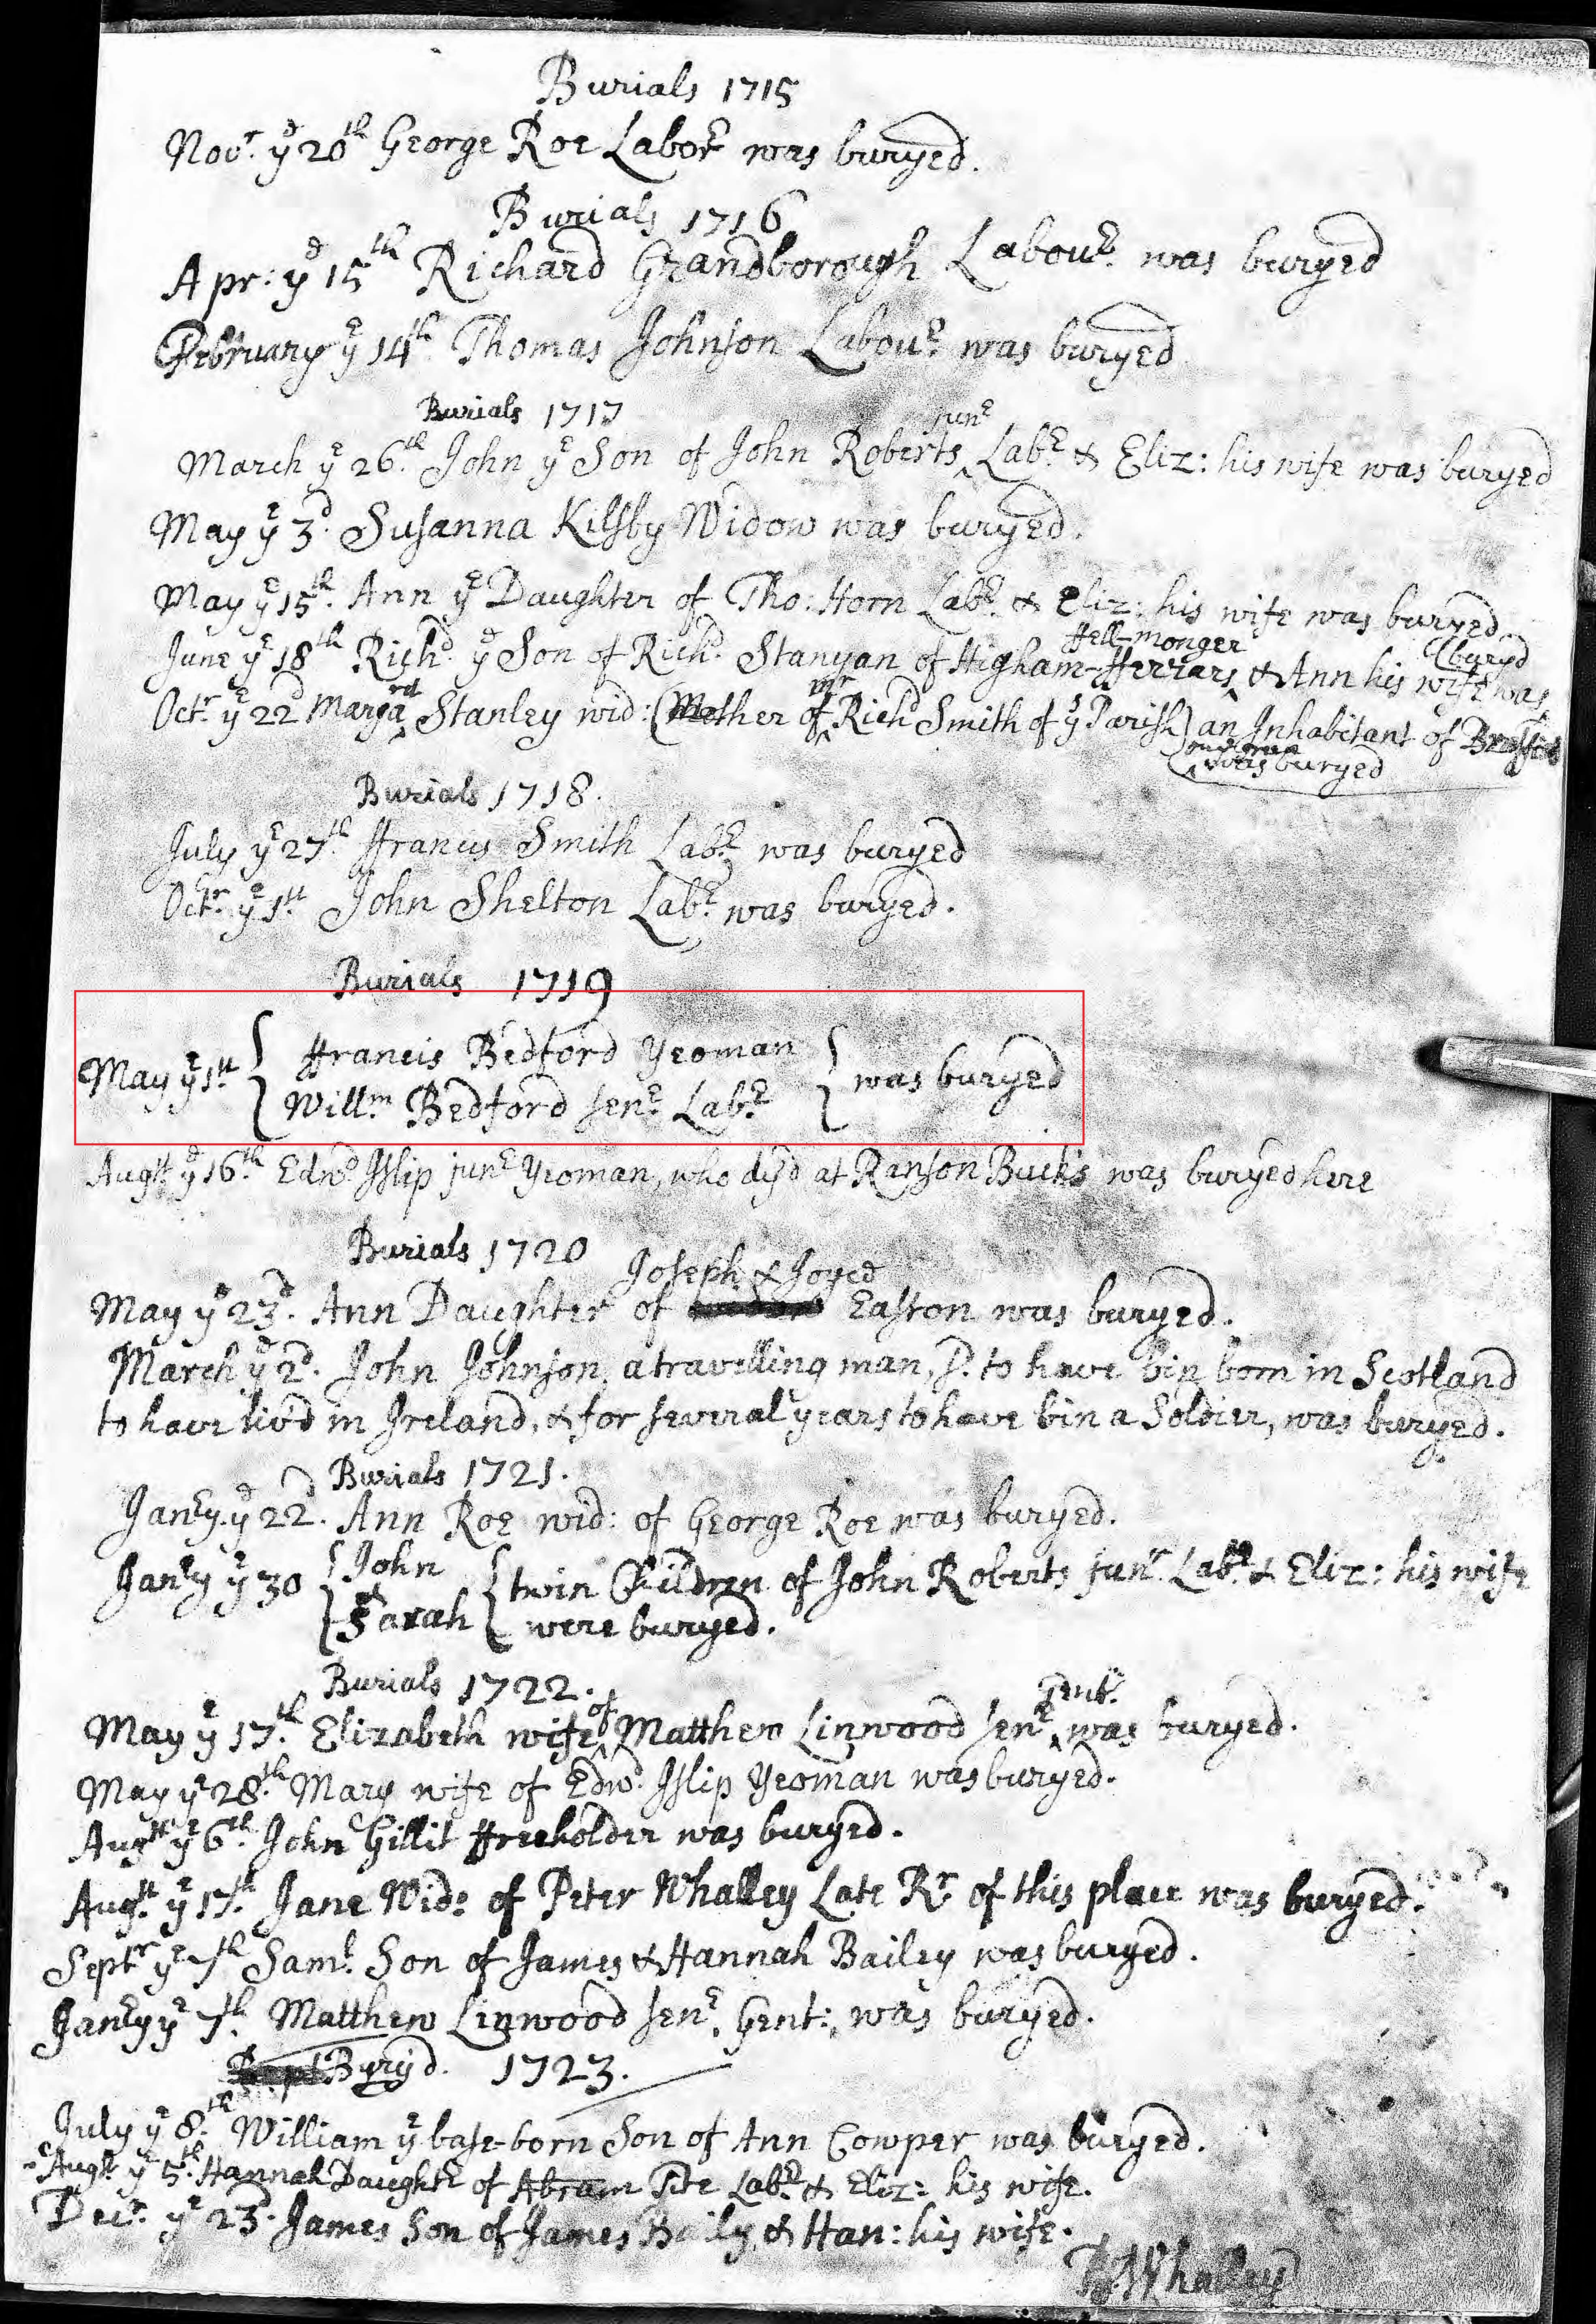 Burials 1715
Novr. ye 20th George Roe Labor was buryed.
Burials 1716
Apr: ye 15th Richard Grandborough Labour. was buryed
February ye 14th. Thomas Johnson Labour. was buryed
Burials 1717
March ye 26th. John ye Son of John Roberts ^ junr Labr. & Eliz: his wife was buryed
May ye 3d. Susanna Kilsby Widow was buryed.
May ye 15th. Ann ye Daughter of Tho: Horn Labr. & Eliz: his wife was buryed
June ye 18th Richd. ye Son of Richd. Stanyan of Higham-fferrars ^ ffell-monger & Ann his wife was (buryd
Octr. ye 22d Marga^rd Stanley wid: (Mother of ^ mr Richd Smith of ys Parish) an Inhabitant of
was buryed
Burials 1718.
July ye 27th. ffrancis Smith Labr. was buryed
Octr. ye 1st. John Shelton Labr. was buryed.
Burials 1719
May ye 1st { ffrancis Bedford Yeoman { was buryed
Willm. Bedford senr. Labr.
Augst ye 16th. Edwd. Islip junr Yeoman, who dy'd at Ranson Bucks was buryed here
Burials 1720
May ye 23d. Ann Daughter of Joseph & Joyce Easton was buryed.
March ye 2d. John Johnson, a travelling man, to have bin born in Scotland
to have liv'd in Ireland, & for several years to have bin a Soldier, was buryed.
Burials 1721.
Janry. ye 22d. Ann Roe wid: of George Roe was buryed.
Janry ye 30 { John { twin Children of John Roberts junr. Labr. & Eliz: his wife
& Sarah were buryed.
Burials 1722.
May ye 17th. Elizabeth wife ^ of Matthew Linwood senr ^ Gent. was buryed.
May ye 28th. Mary wife of Edwd. Islip Yeoman was buryed.
Augst ye 6th. John Gillit ffreeholder was buryed.
Augst. ye 17th. Jane Wid: of Peter Whalley Late Rr. of this place was buryed.
Septr ye 7th Saml. Son of James & Hannah Bailey was buryed.
Janry ye 7th. Matthew Linwood senr. Gent:, was buryed.
Buryd. 1723.
July ye 8th. William ye base-born Son of Ann Cowper was buryed.
Augst ye 5th. Hannah Daughtr of Abram Tite Labr. & Eliz: his wife.
Decr. ye 23d. James Son of James Baily & Han: his wife.
Whalley